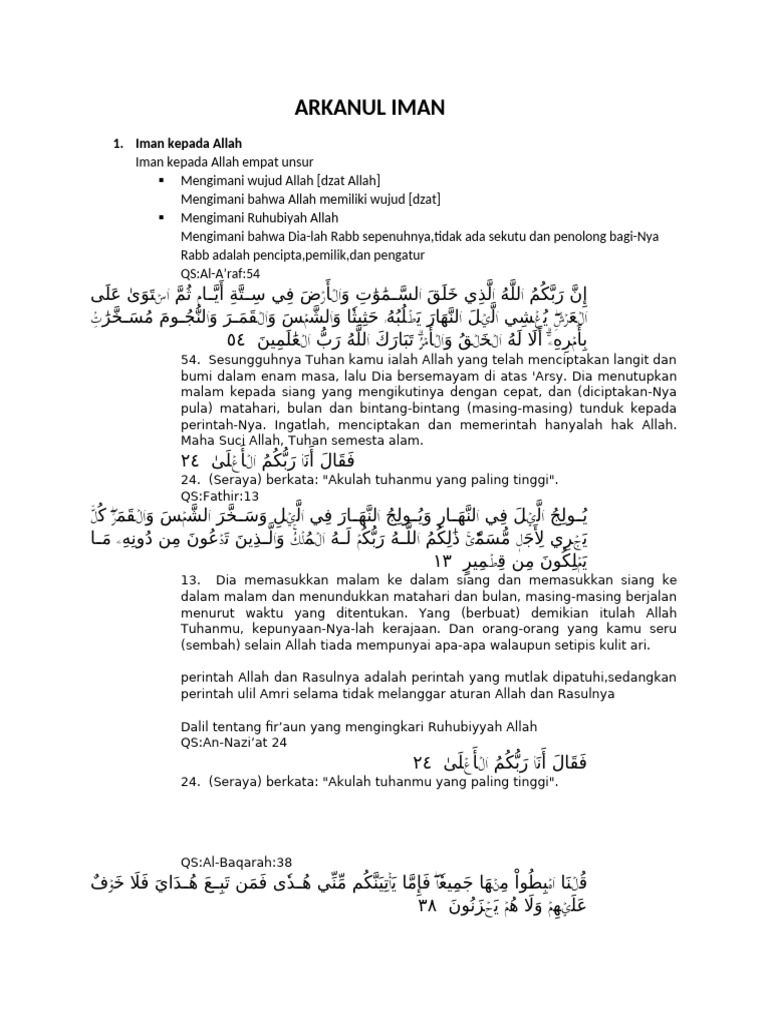 ARKANUL IMAN
1. Iman kepada Allah
Iman kepada Allah empat unsur
▪ Mengimani wujud Allah [dzat Allah]
Mengimani bahwa Allah memiliki wujud [dzat]
▪ Mengimani Ruhubiyah Allah
Mengimani bahwa Dia-lah Rabb sepenuhnya,tidak ada sekutu dan penolong bagi-Nya
Rabb adalah pencipta,pemilik,dan pengatur
QS:Al-A’raf:54
إِنَّ رَبَّكُمُ ٱللَّهُ ٱلَّذِي خَلَقَ ٱلسَّمَٰوَٰتِ وَٱلۡأَرۡضَ فِي سِتَّةِ أَيَّامٖ ثُمَّ ٱسۡتَوَىٰ عَلَى
ٱلۡعَرۡشِۖ يُغۡشِي ٱلَّيۡلَ ٱلنَّهَارَ يَطۡلُبُهُۥ حَثِيثٗا وَٱلشَّمۡسَ وَٱلۡقَمَرَ وَٱلنُّجُومَ مُسَخَّرَٰتِۭ
بِأَمۡرِهِۦٓۗ أَلَا لَهُ ٱلۡخَلۡقُ وَٱلۡأَمۡرُۗ تَبَارَكَ ٱللَّهُ رَبُّ ٱلۡعَٰلَمِينَ ٥٤
54. Sesungguhnya Tuhan kamu ialah Allah yang telah menciptakan langit dan
bumi dalam enam masa, lalu Dia bersemayam di atas 'Arsy. Dia menutupkan
malam kepada siang yang mengikutinya dengan cepat, dan (diciptakan-Nya
pula) matahari, bulan dan bintang-bintang (masing-masing) tunduk kepada
perintah-Nya. Ingatlah, menciptakan dan memerintah hanyalah hak Allah.
Maha Suci Allah, Tuhan semesta alam.
فَقَالَ أَنَا۠ رَبُّكُمُ ٱلۡأَعۡلَىٰ ٢٤
24. (Seraya) berkata: "Akulah tuhanmu yang paling tinggi".
QS:Fathir:13
يُولِجُ ٱلَّيۡلَ فِي ٱلنَّهَارِ وَيُولِجُ ٱلنَّهَارَ فِي ٱلَّيۡلِ وَسَخَّرَ ٱلشَّمۡسَ وَٱلۡقَمَرَۖ كُلّٞ
يَجۡرِي لِأَجَلٖ مُّسَمّٗىۚ ذَٰلِكُمُ ٱللَّهُ رَبُّكُمۡ لَهُ ٱلۡمُلۡكُۚ وَٱلَّذِينَ تَدۡعُونَ مِن دُونِهِۦ مَا
يَمۡلِكُونَ مِن قِطۡمِيرٍ ١٣
13. Dia memasukkan malam ke dalam siang dan memasukkan siang ke
dalam malam dan menundukkan matahari dan bulan, masing-masing berjalan
menurut waktu yang ditentukan. Yang (berbuat) demikian itulah Allah
Tuhanmu, kepunyaan-Nya-lah kerajaan. Dan orang-orang yang kamu seru
(sembah) selain Allah tiada mempunyai apa-apa walaupun setipis kulit ari.
perintah Allah dan Rasulnya adalah perintah yang mutlak dipatuhi,sedangkan
perintah ulil Amri selama tidak melanggar aturan Allah dan Rasulnya
Dalil tentang fir’aun yang mengingkari Ruhubiyyah Allah
QS:An-Nazi’at 24
فَقَالَ أَنَا۠ رَبُّكُمُ ٱلۡأَعۡلَىٰ ٢٤
24. (Seraya) berkata: "Akulah tuhanmu yang paling tinggi".
QS:Al-Baqarah:38
قُلۡنَا ٱهۡبِطُواْ مِنۡهَا جَمِيعٗاۖ فَإِمَّا يَأۡتِيَنَّكُم مِّنِّي هُدٗى فَمَن تَبِعَ هُدَايَ فَلَا خَوۡفٌ
عَلَيۡهِمۡ وَلَا هُمۡ يَحۡزَنُونَ ٣٨